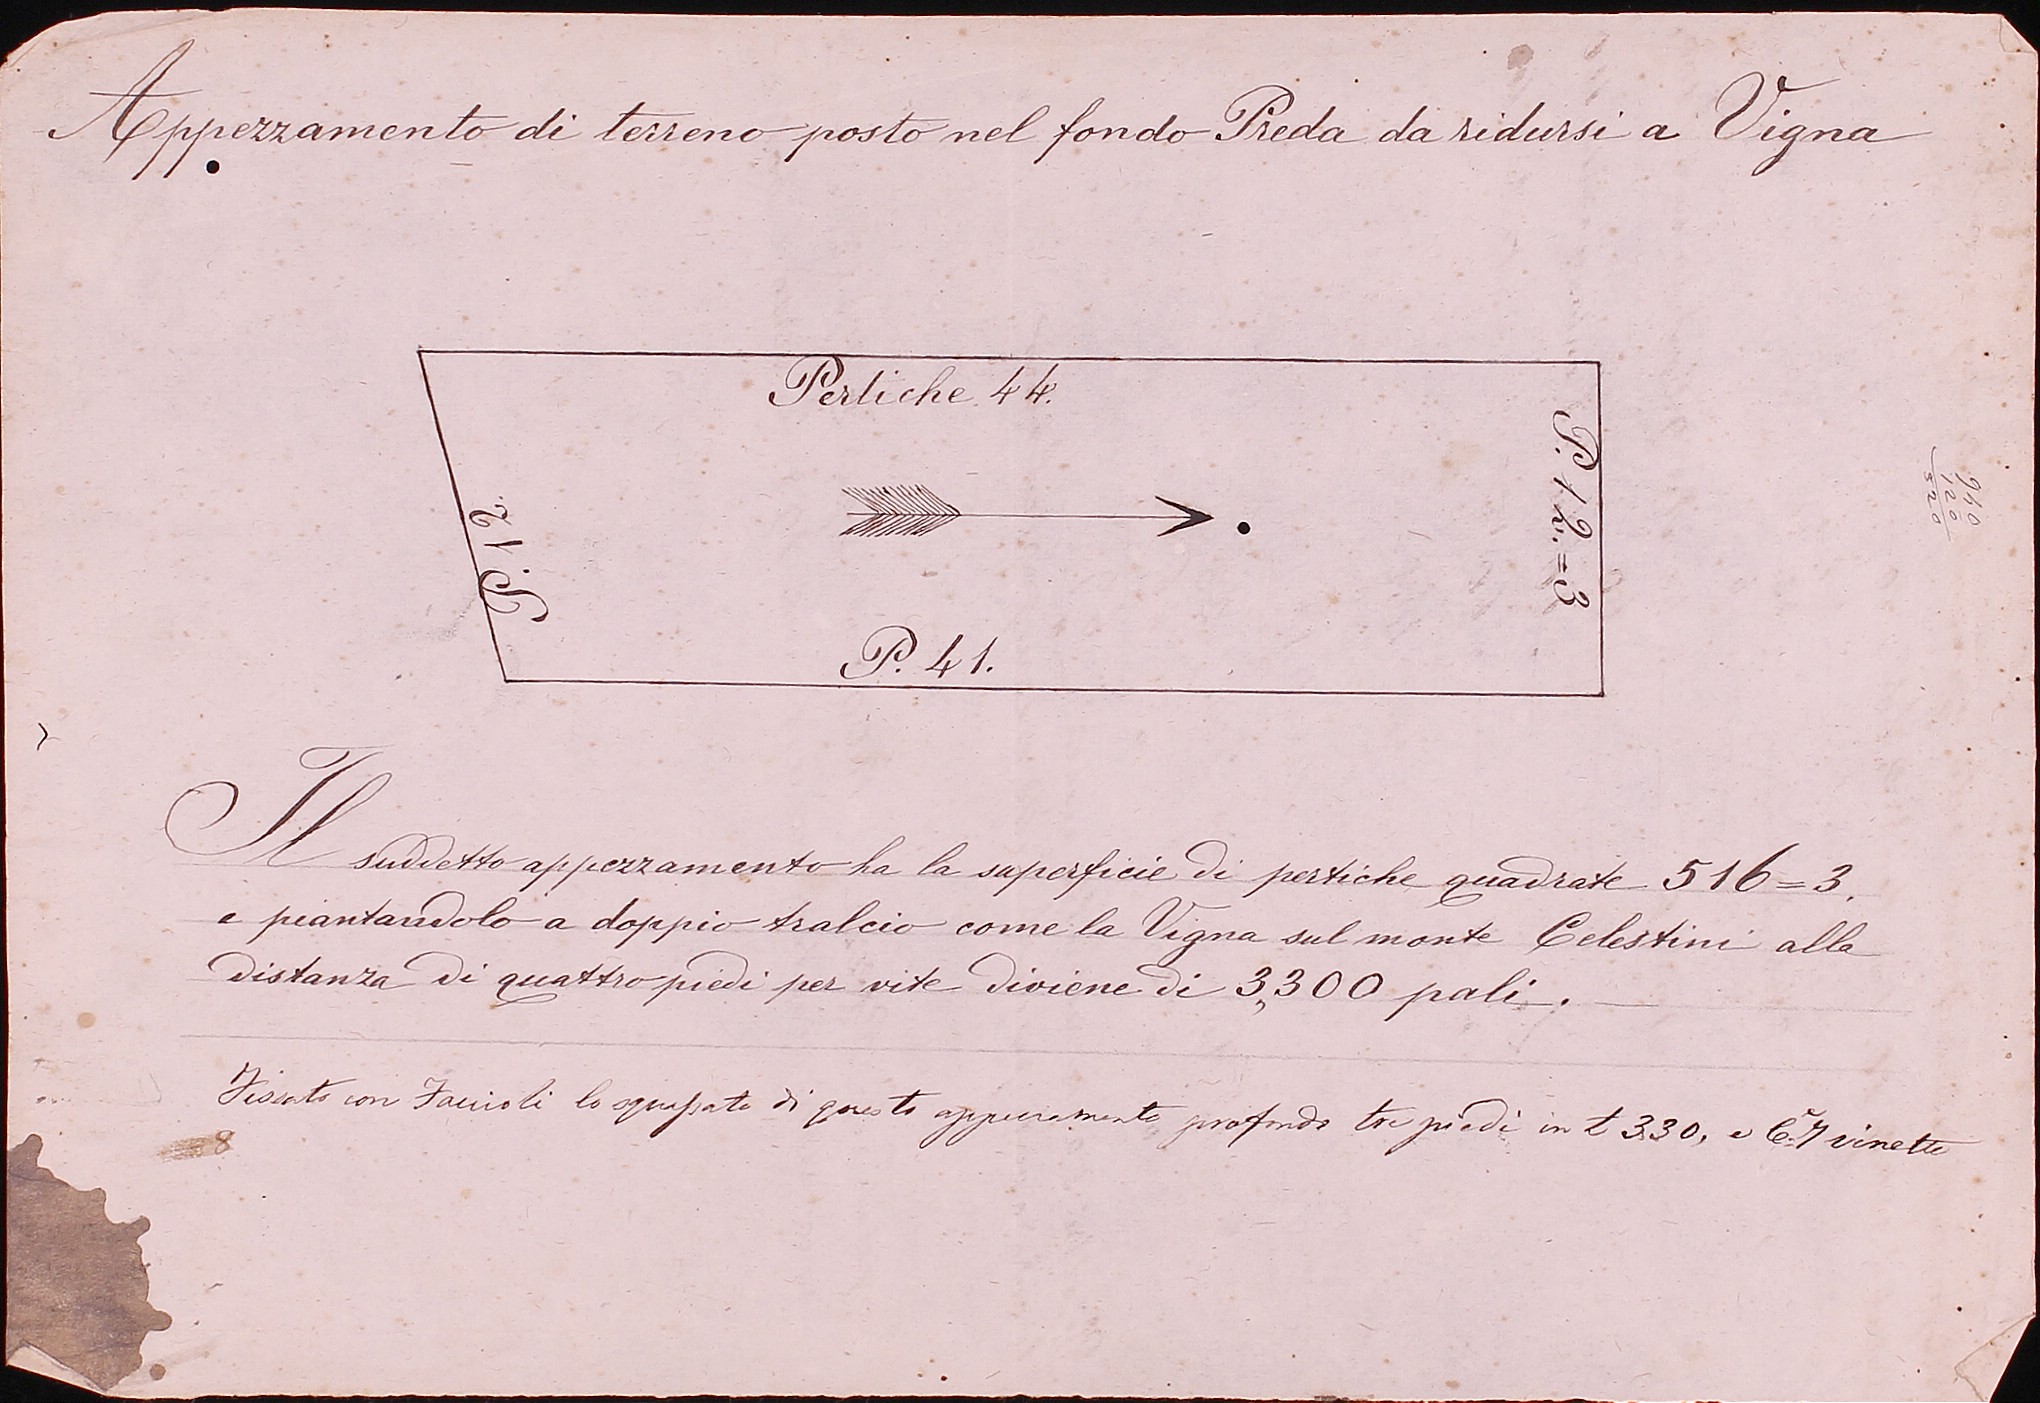 Appezzamento di terreno posto nel fondo Preda da ridursi a Vigna
Pertiche 44.
P. 12.
P. 12.=3
P. 41.
940
120
520
Il suddetto appezzamento ha la superficie di pertiche quadrate 516=3.
e piantandolo a doppio tralcio come la Vigna sul monte Celestini alla
distanza di quattro piedi per vite diviene di 3,300 pali.
Fissato con Faccioli lo squassato di questo appezzamento profondo tre piedi in £ 330, e C. 7 vinette
8